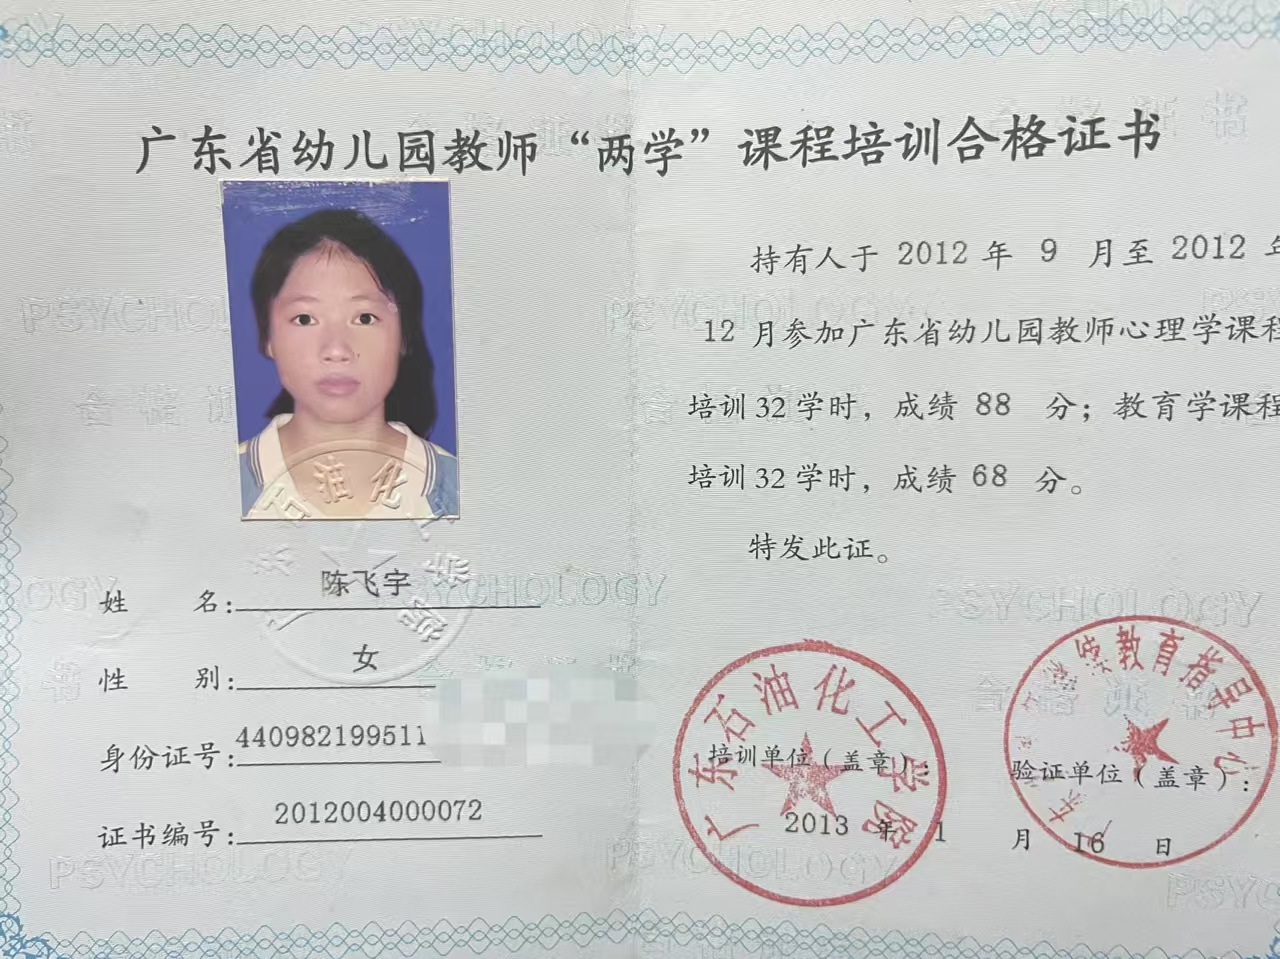 广东省幼儿园教师“两学”课程培训合格证书
姓 名：陈飞宇
性 别：女
身份证号：440982199511
证书编号：2012004000072
持有人于 2012 年 9 月至 2012 年
12 月参加广东省幼儿园教师心理学课程
培训 32 学时，成绩 88 分；教育学课程
培训 32 学时，成绩 68 分。
特发此证。
培训单位（盖章）：
验证单位（盖章）：
2013 年 1 月 16 日
广东石油化工学院
教育指导中心
石油化工学院
PSYCHOLOGY
合格证书